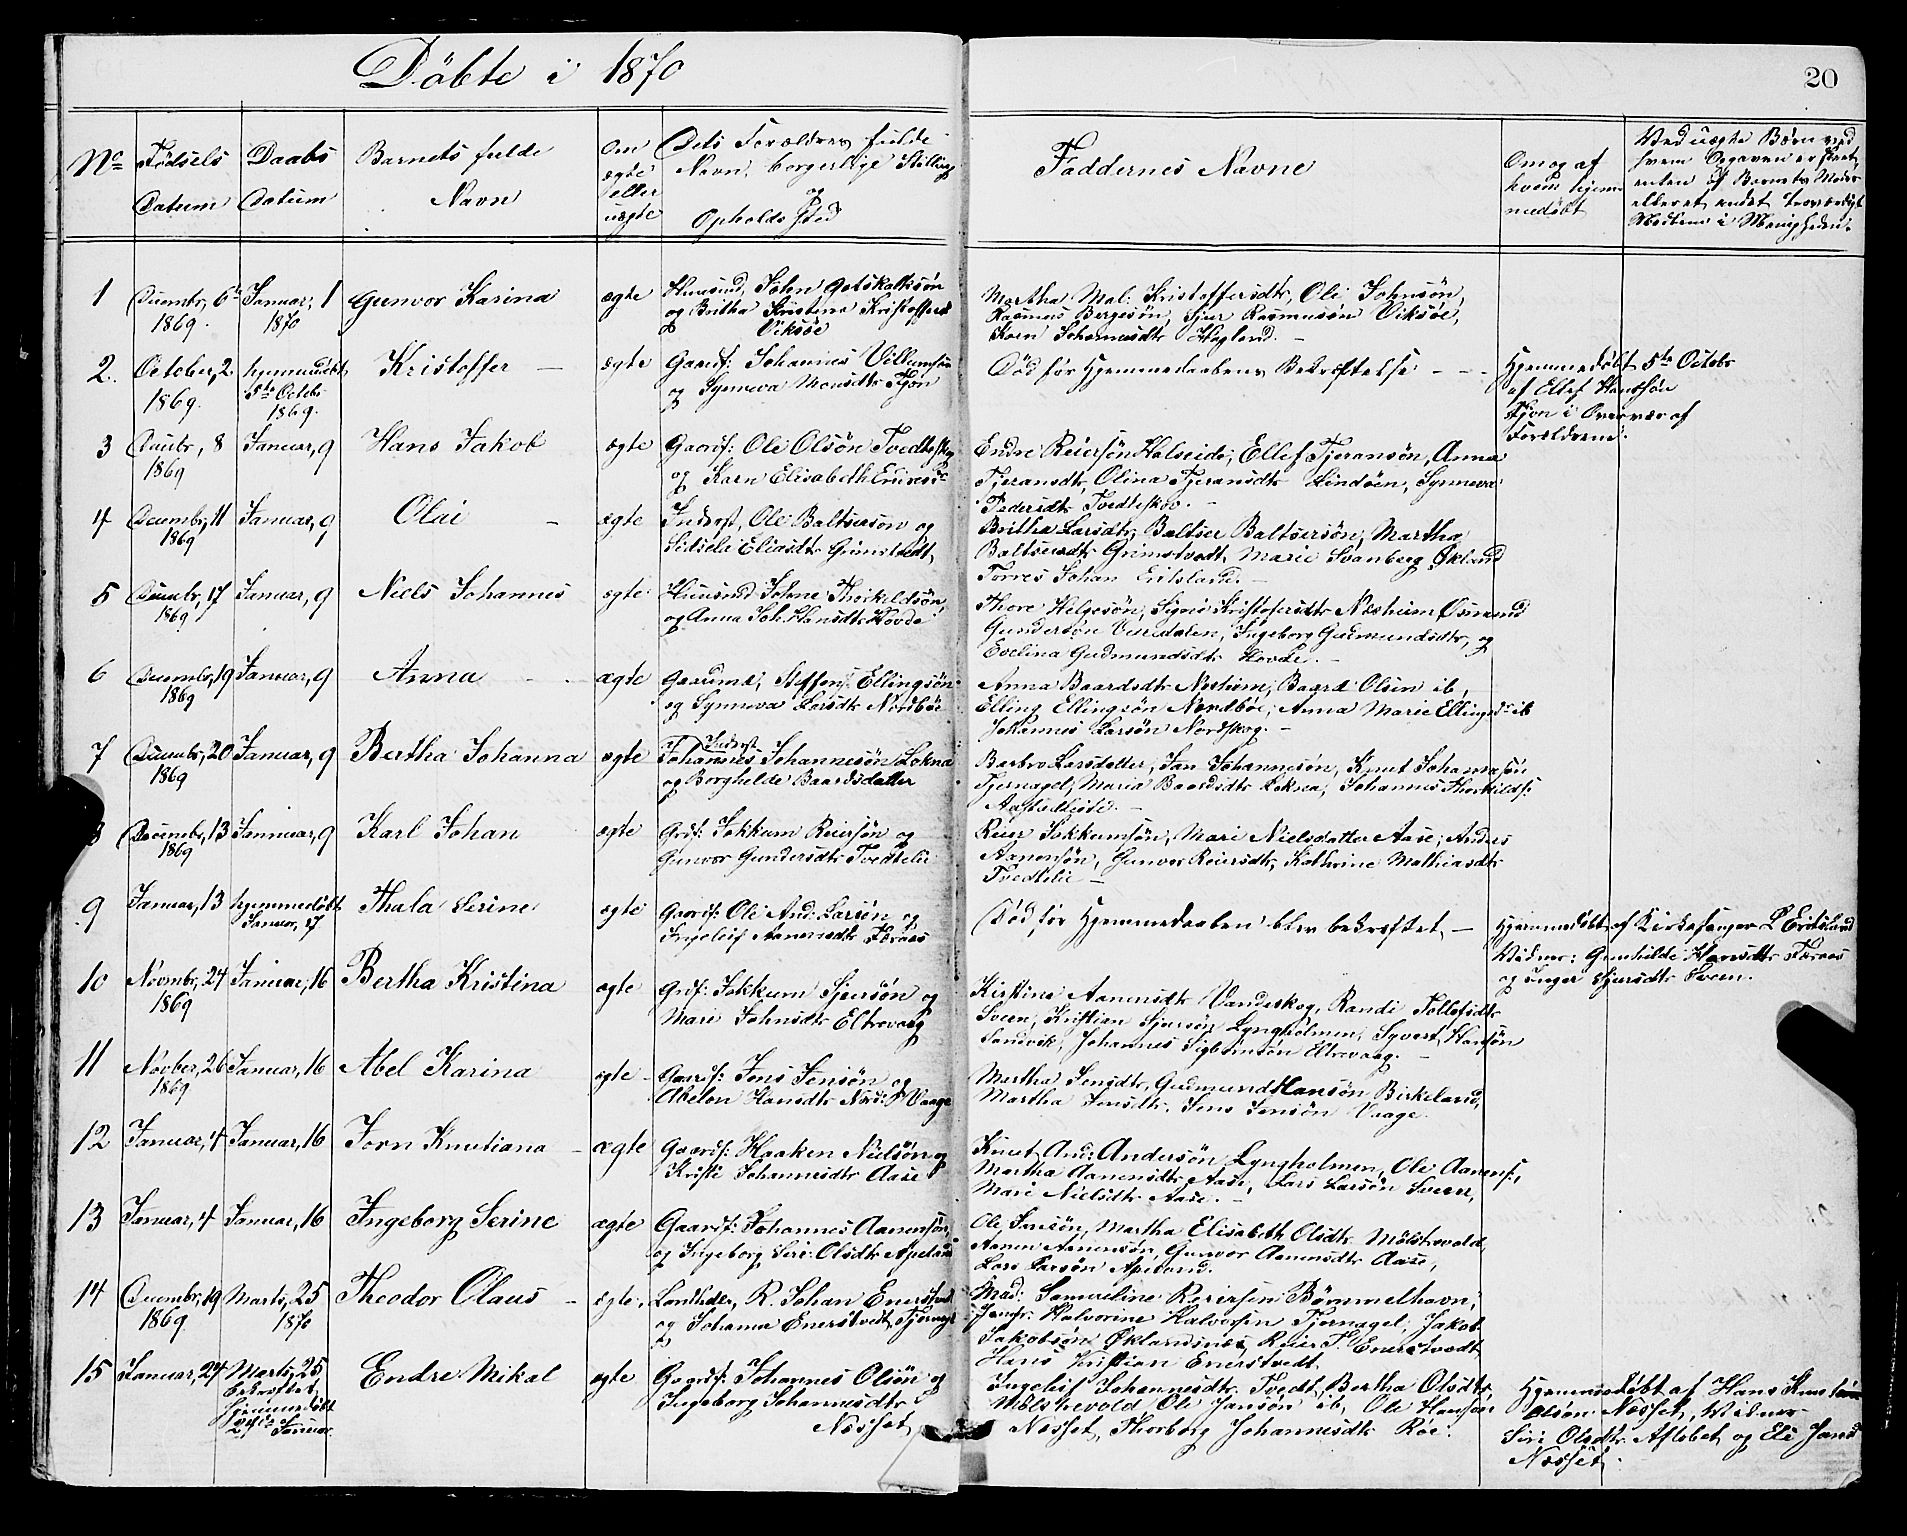 Döbte i 1870
20
No Fødsels Datum
Daabs Datum
Barnets fulde Navn
Om ægte eller uægte
Dets Forældres fulde Navn, borgerlige Stilling og Opholdssted
Faddernes Navne
Om og af hvem hjemmedøbt
Ved uægte Børn ved hvem
1 Decembr, 6te 1869. Januar, 1 1870 Gunvor Karina ægte
Huusmd John Gotskalksøn
og Britha Kristena Kristoffersd
Viksøe
Martha Mal: Kristoffersdtr, Ole Johnsøn,
Rasmus Bergesøn, Sjur Rasmusøn Viksøe,
Karn Johannesdtr Hagland. –
2. October, 2. 1869. hjemmedøbt 5te Octobr 1869. Kristoffer – ægte
Gaardf: Johannes Villumsøn
og Synneva Monsdtr Fjon
Død før Hjemmedaabens Bekræftelse. – – –
Hjemmedøbt 5te Octobr
af Ellef Hanssøn
Fjon i Overvær af
Forældrene.
3 Decbr, 8 1869 Januar, 9 Hans Jakob ægte
Gaardf: Ole Olsøn Tvedteskog
og Karn Elisabeth
Endre Reiersøn Halseide, Ellef Tjeransøn, Anna
Tjeransdtr, Olina Tjeransdtr Lindøen, Synneva
Pedersdtr Tvedteskov. –
4 Decembr, 11 1869 Januar, 9 Olai – ægte
Inderst, Ole Baltsersøn og
Sidsele Eliasdtr Grimstvedt,
Britha Larsdtr, Baltser Baltsersøn, Martha
Baltsersdtr Grimstvedt, Marie Svanberg Økland
Torres Johan Eritsland. –
5 Decembr, 17 1869 Januar, 9 Niels Johannes ægte
Huusmd Johne Thorkildsøn,
og Anna Joh. Hansdtr Hovde
Thore Helgesøn, Signe Kristofersdtr Næsheim, Osmund
Gundersøn, Ingeborg Gudmundsdtr, og
Evelina Gudmundsdtr Hovde. –
6 Decembr, 19 1869 Januar, 9 Anna – ægte
Gaardmd, Steffen Ellingsøn
og Synneva Larsdtr Nordbøe
Anna Baardsdtr Næsheim, Baard Olsen ib,
Elling Ellingsøn Nordbøe, Anna Marie Ellingsd: ib
Johannes Larsøn Nordskog. –
7 Decembr, 20 1869 Januar, 9 Bertha Johanna ægte
af Inderst
Johannes Johannesøn Lokna
og Borghilde Baardsdatter
Barbro Larsdatter, Jan Johannesøn, Knut Johannesøn
Tjernagel, Maria Baardsdtr Loksea, Johannes Thorkilds:
8 Decembr, 13 1869 Januar, 9 Karl Johan ægte
Grdf: Jokkum Reiersøn og
Gunvor Gundersdtr Tvedtelie
Reier Jokkumsøn, Mari Nielsdatter Aase, Andres
Aanensøn, Gunvor Reiersdtr, Kathrine Mathiasdtr
Tvedtelie –
9 Januar, 13 hjemmedøbt Januar, 17 Thala Serine ægte
Gaardf: Ole And: Larsøn og
Ingeleif Aanensdtr Færaas
Død før Hjemmedaaben blev bekræftet, –
Hjemmedøbt af Kirkesanger L Eritsland
Vidner: Gunhilde Hansdtr Færaas
og Inger Sjursdtr Sveen.
10 Novmbr, 24 1869 Januar, 16 Bertha Kristina ægte
Grdf: Jokkum Sjursøn og
Mari Johnsdtr Eltravaag
Kirstine Aanensdtr Vandeskog, Randi Tollefsdtr
Sveen, Kristian Sjursøn Lyngholmen, Syvert Hansøn
Sandvik, Johannes Sigbørnsøn Eltravaag. –
11 Novber, 26 1869 Januar, 16 Abel Karina ægte –
Gaardf: Jens Jensøn og
Abelon Hansdtr Nord: Vaage
Martha Jensdtr, Gudmund Hansøn Birkeland,
Martha Jensdtr, Jens Jensøn Vaage.
12 Januar, 4 Januar, 16 Jorn Knutiana – ægte
Gaardf: Haaken Nielsøn og
Kristi Johannesdtr Aase
Knut And: Andersøn Lyngholmen, Ole Aanens:,
Martha Aanensdtr Aase, Lars Larsøn Sveen,
Mari Nielsdtr Aase. –
13 Januar, 4 Januar, 16 Ingeborg Serine ægte
Gaardf: Johannes Aanensøn,
og Ingeborg Siri: Olsdtr Apeland
Ole Jansøn, Martha Elisabeth Olsdtr Mølstrevold,
Aanen Aanensøn, Gunvor Aanensdtr Aase,
Lars Larsøn Apeland.
14 Decembr, 19 1869 Marts, 25 1870 Theodor Olaus – ægte.
Landhdler, R. Johan Enerstvedt
og Johanna Enerstvedt Tjernagel
Mad: Samueline Reiersen Bømmelhavn,
Jomfr: Halvorine Halvorsen Tjernagel, Jakob
Jakobsøn Øklandsnæs, Reier T. Enerstvedt
Hans Kristian Enerstvedt
15 Januar, 24 Marts, 25 bekræftet, hjemmedøbt Januar. Endre Mikal ægte
Gaardf: Johannes Olsøn og
Ingeborg Johannesdtr
Næsset
Ingeleif Johannesdtr Tvedt, Bertha Olsdtr,
Mølstrevold, Ole Jansøn ib, Ole Hansøn
Næsset, Thorborg Johannesdtr Røe.
Hjemmedøbt af Hans Knutsøn
Olsøn Næsset, Vidner
Siri Olsdtr Afløbet og Eli Jansd
Næsset.